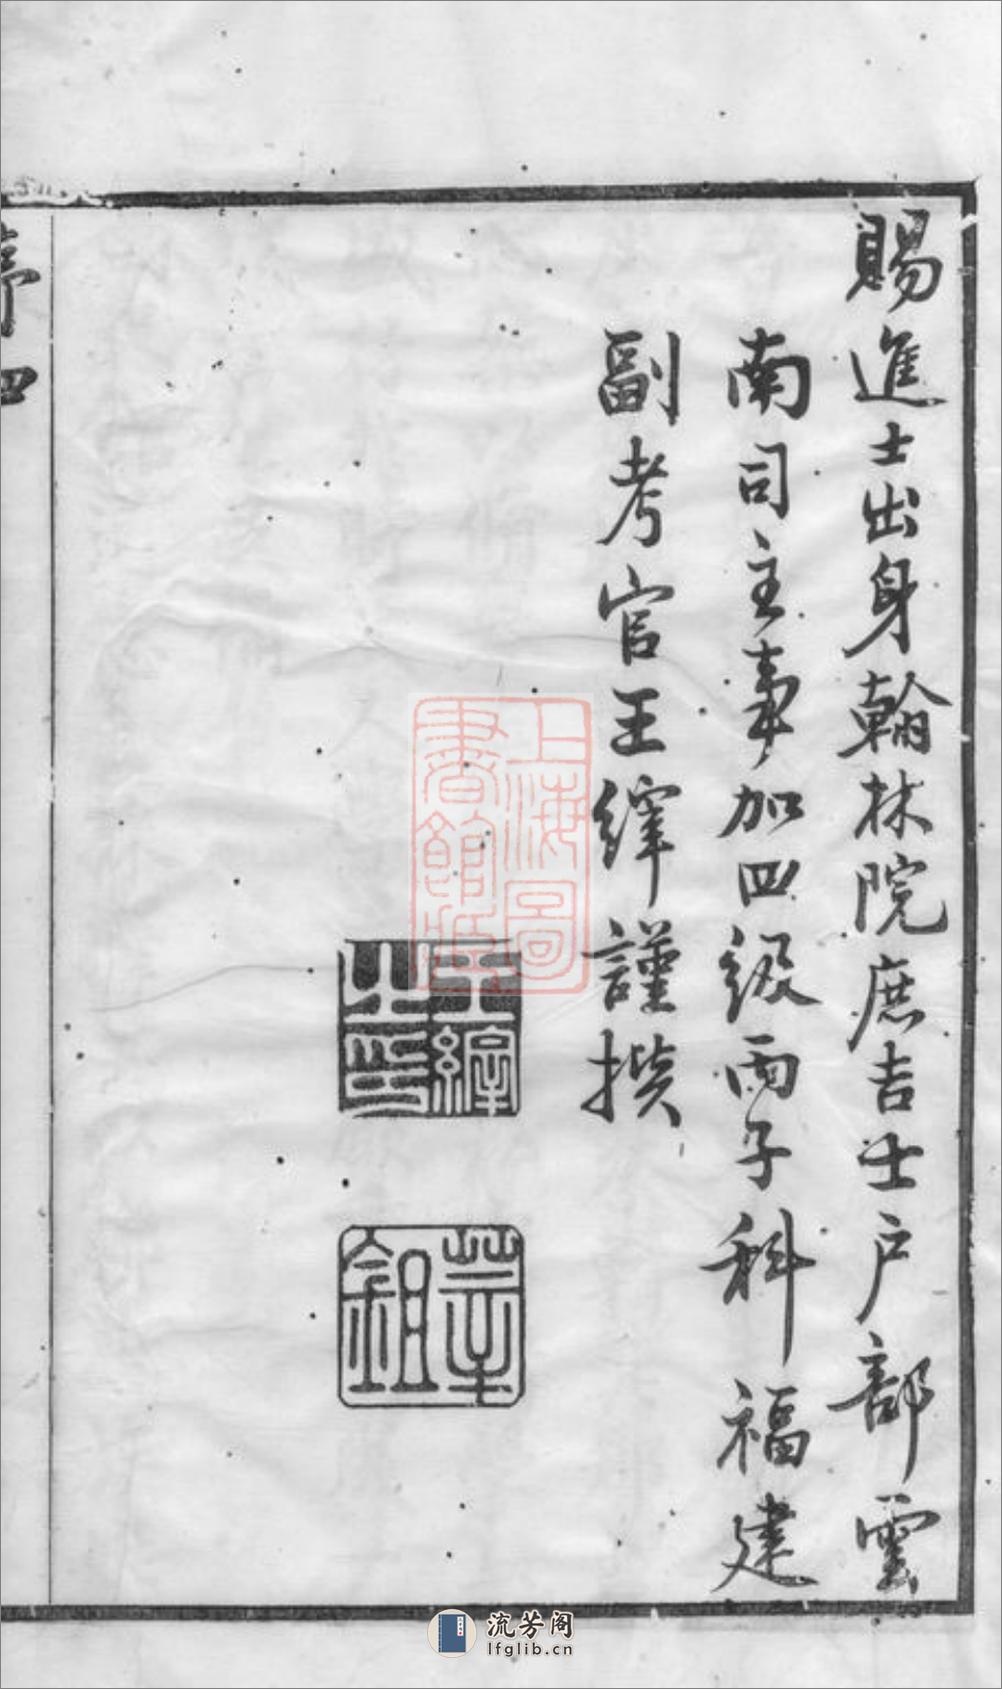 賜進士出身翰林院庶吉士户部雲
南司主事加四級丙子科福建
副考官王繹謹撰
王繹之印
上海圖書館藏
序四
流芳阁
lfglib.cn